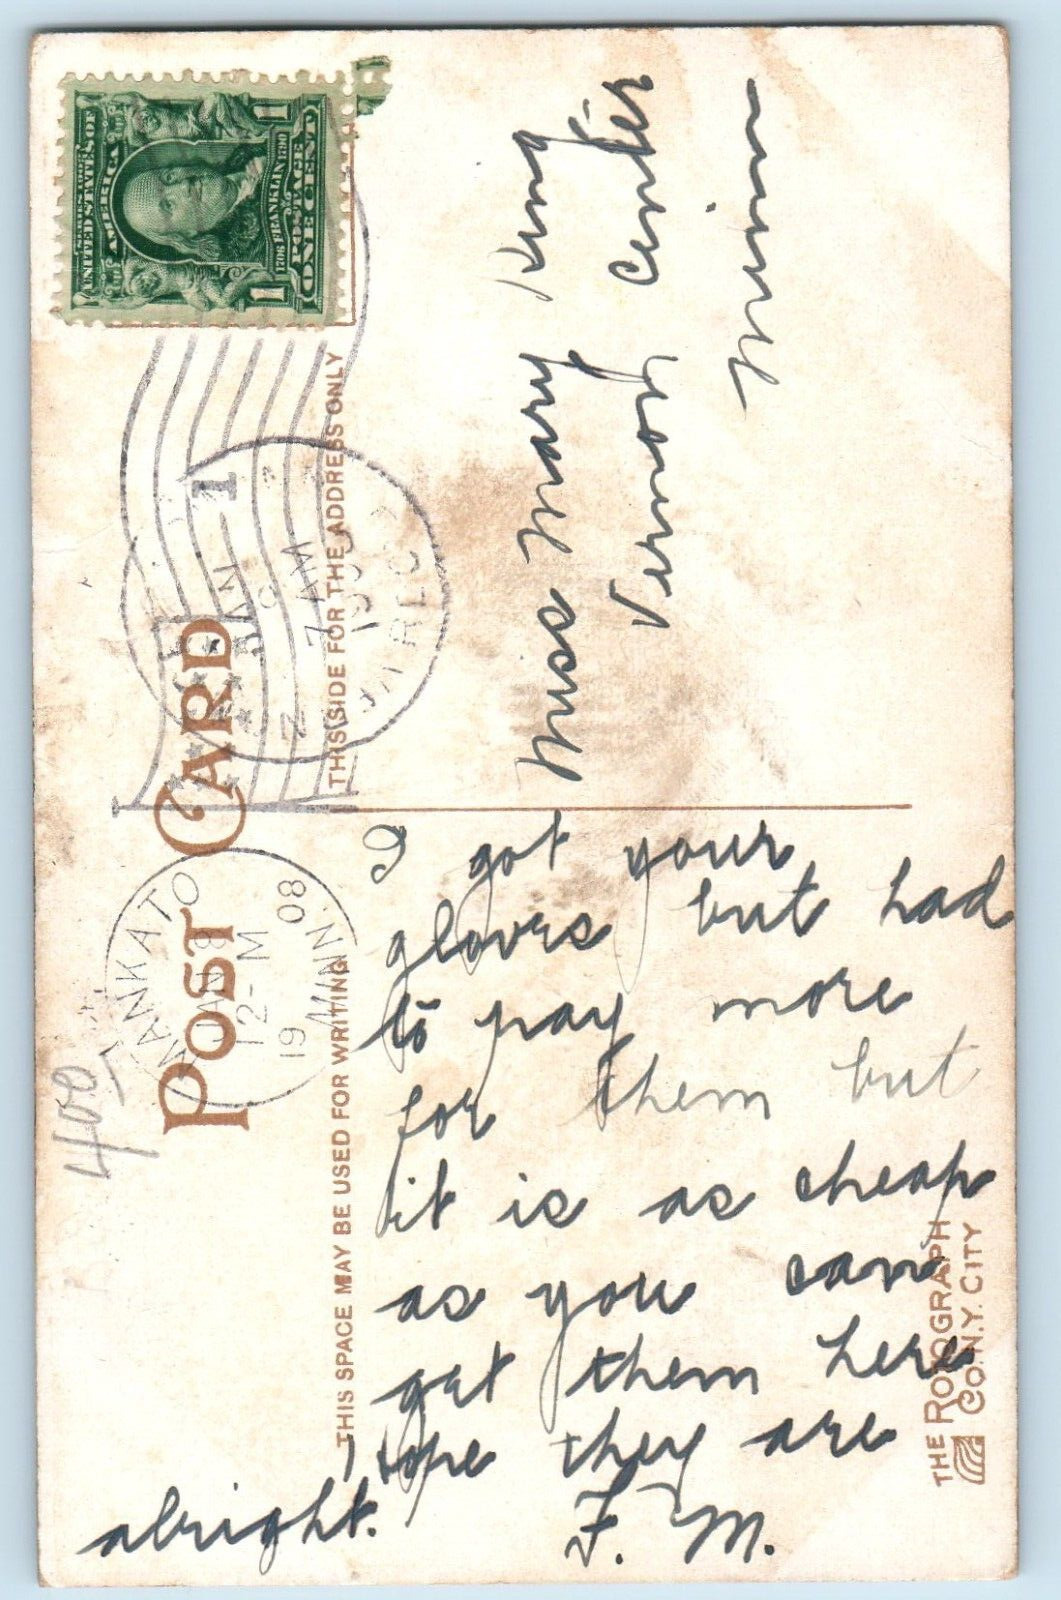 POST CARD
THIS SPACE MAY BE USED FOR WRITING
THIS SIDE FOR THE ADDRESS ONLY
SERIES 1902
UNITED STATES OF
AMERICA
1706 FRANKLIN 1790
POSTAGE
1 ONE CENT 1
MANKATO
JAN 8
12-M
19 08
MINN.
JAN
9
7 AM
1
400
Miss Mary King
Vernon Center
Minn
I got your
gloves but had
to pay more
for them but
it is as cheap
as you can
get them here
I hope they are
alright.
F. M.
THE ROTOGRAPH
CO. N.Y. CITY